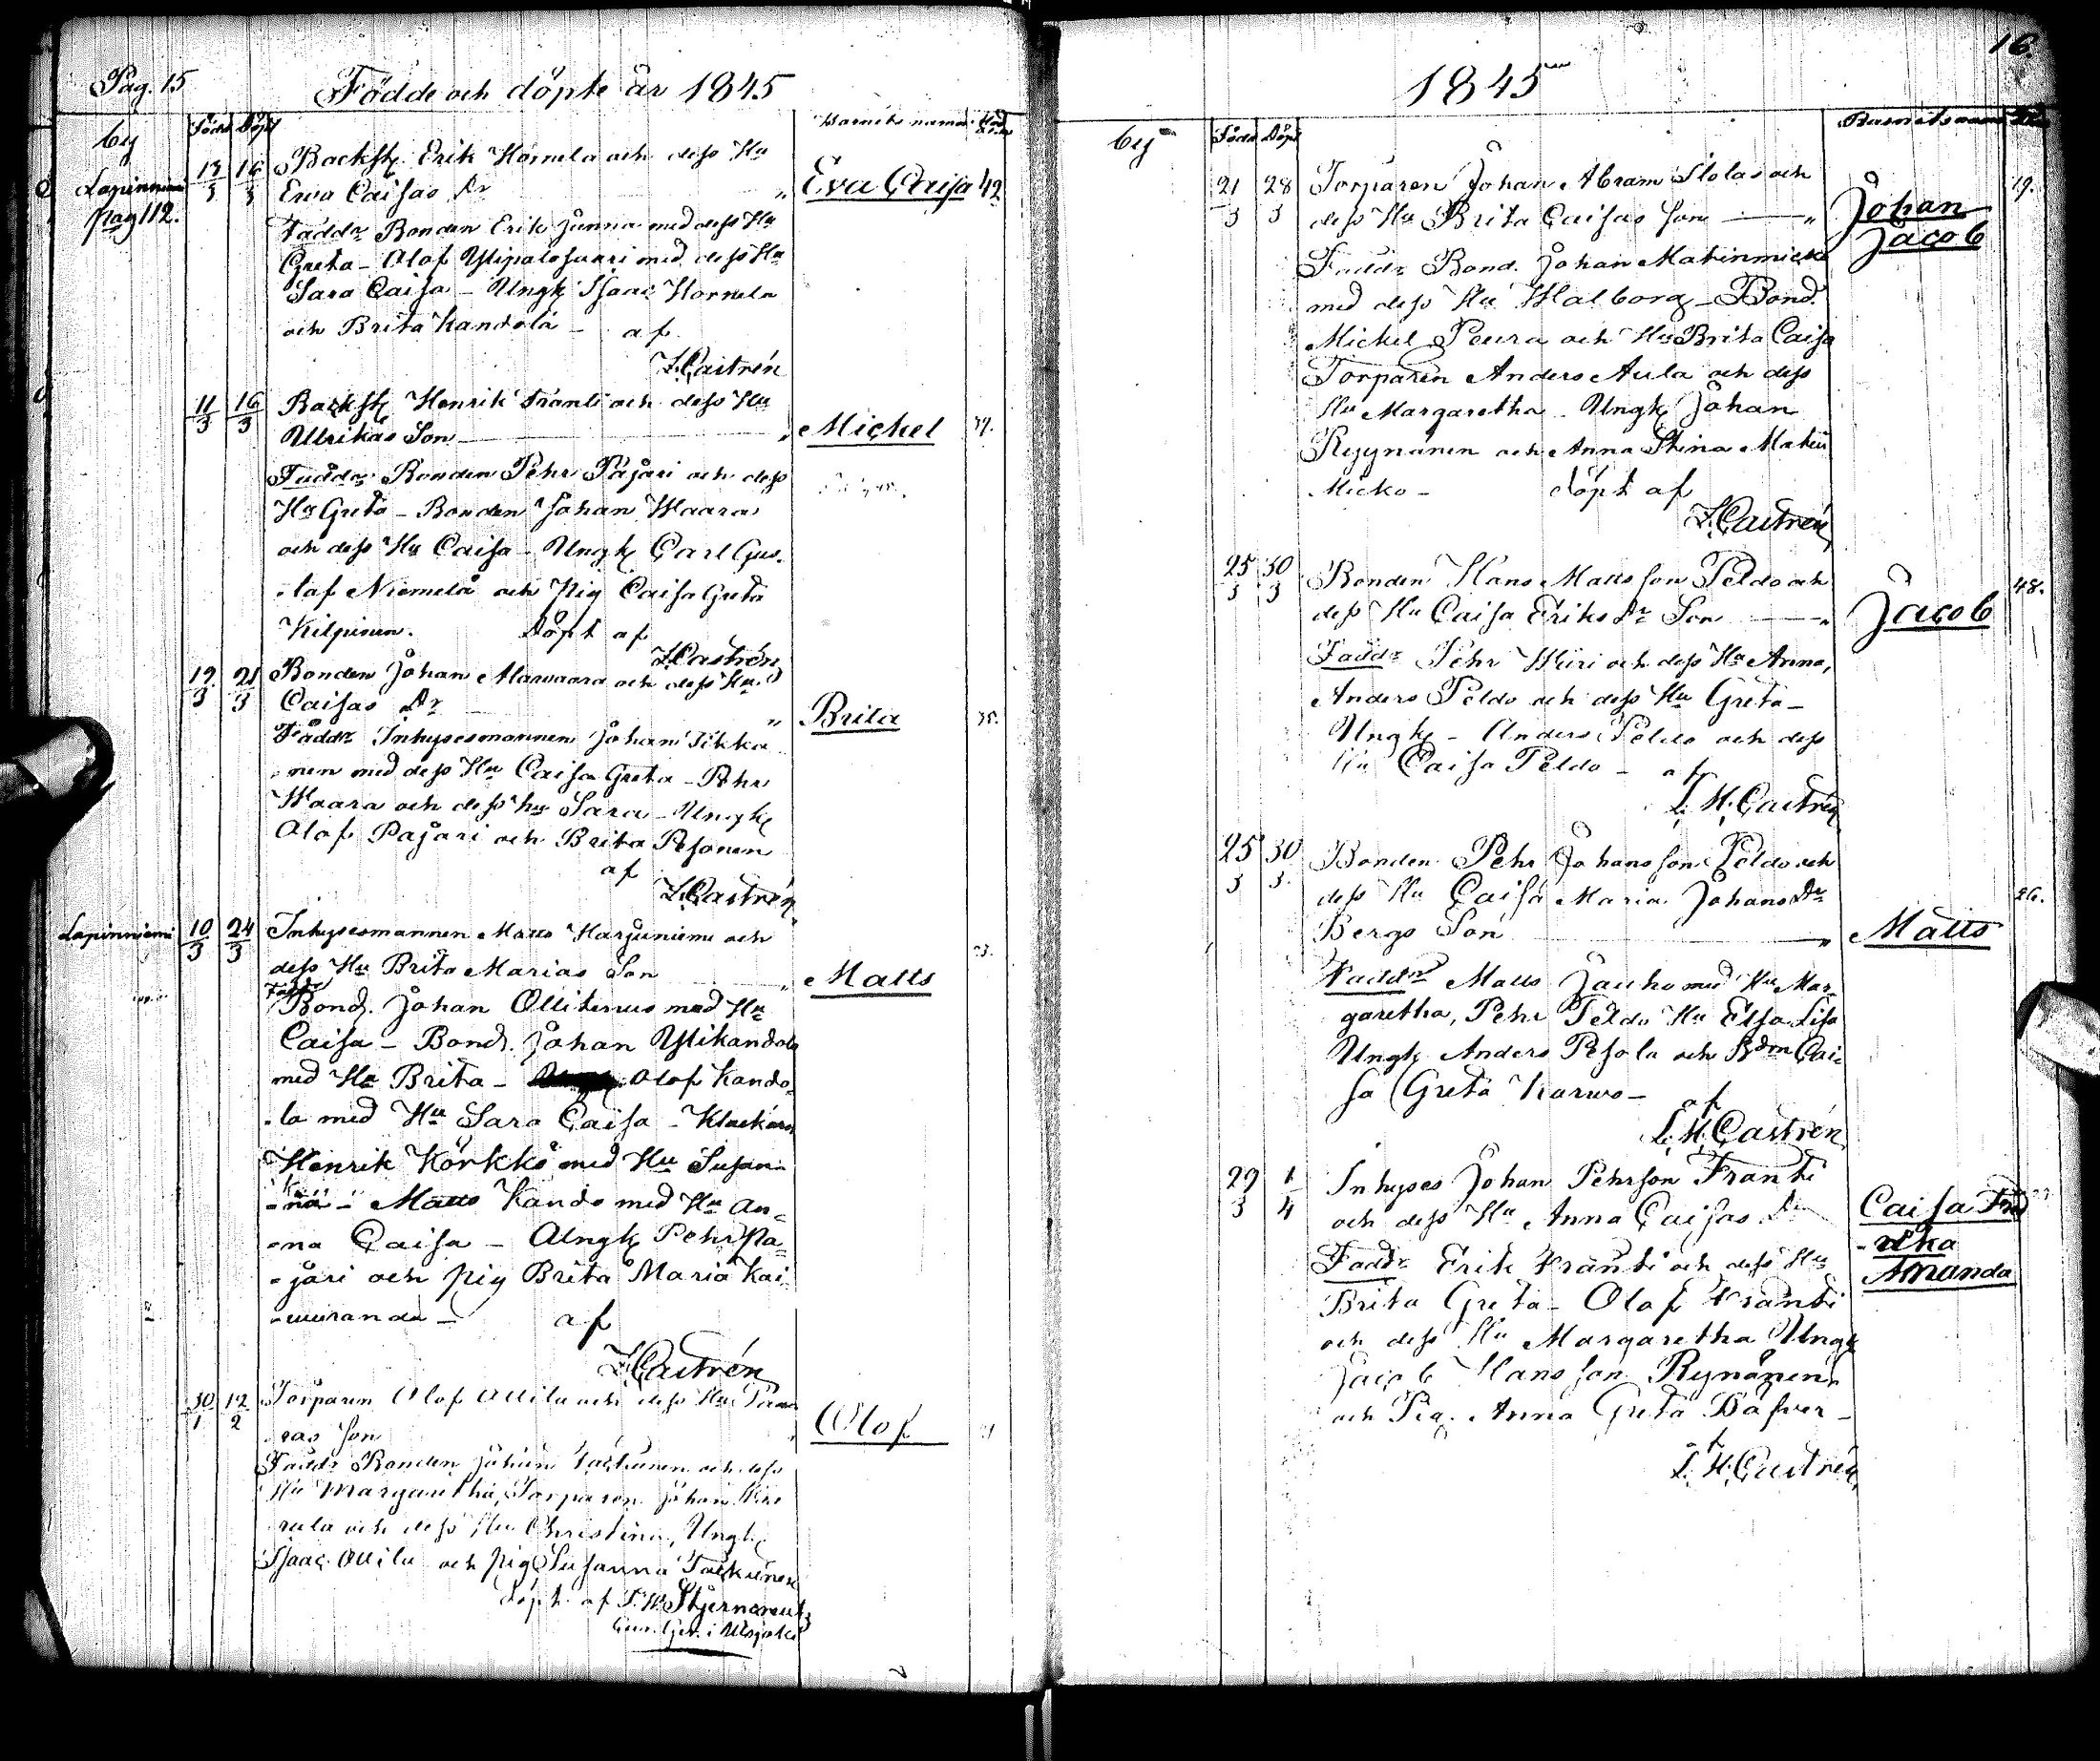 Pag. 15 Födde och döpte år 1845
by Född Döpt Barnets namn
Lapinniemi 13/3 16/3 Backst. Erik Hornela och dess Hu
pag 112. Ewa Caisas Dr " Eva Caisa 42
Faddr Bonden Erik Junna med dess Hu
Greta - Olof Ylipalosaari med dess Hu
Sara Caisa - Ungk Isaac Hornela
och Brita Kandola - af
Castrén
11/3 16/3 Backst. Henrik Franti och dess Hu
Ulrikas Son " Michel 37.
Faddr Bonden Pehr Pajari och dess
Hu Greta - Bonden Johan Waara
och dess Hu Caisa - Ungk Carl Gus-
-taf Niemelä och Pig Caisa Greta
Kilpinen. Döpt af
Castrén
19/3 21/3 Bonden Johan Alavaara och dess Hu
Caisas Dr " Brita 35.
Faddr Inhysesmannen Johan Tikka
-nen med dess Hu Caisa Greta - Pehr
Waara och dess hu Sara - Ungk
Olof Pajari och Brita Pesonen
af
Castrén
Lapinniemi 10/3 24/3 Inhysesmannen Matts Harjuniemi och
dess Hu Brita Marias Son " Matts
Faddr
Bond. Johan Ollitervus med Hu
Caisa - Bond. Johan Ylikandola
med Hu Brita - Olof Kando-
-la med Hu Sara Caisa - Klockaren
Henrik Körkkö med Hu Susan-
-na - Matts Kando med Hu An-
-na Caisa - Ungk Pehr Pa-
-jari och pig Brita Maria Kai
-nuranda - af
Castrén
30/1 12/2 Torparen Olof Ollila och dess Hu
son Olof
Faddr Bonden Johan och dess
Hu Margaretha, Torparen Johan
och dess Hu Christina, Ungk
Isaac Ollila och pig Susanna
Döpt af Stjerncreutz
i Utsjoki

16.
1845
by Född Döpt Barnets namn
21/3 28/3 Torparen Johan Abram Slolas och
dess Hu Brita Caisas son " Johan 19.
Jacob
Faddr Bond. Johan Matinmicko
med dess Hu Walborg - Bond.
Michel Peura och Hu Brita Caisa
Torparen Anders Aula och dess
Hu Margaretha Ungk Johan
Ryynänen och Anna Stina Matin
Micko - döpt af
Castrén
25/3 30/3 Bonden Hans Mattsson Peldo och
dess Hu Caisa Eriks Dr Son " Jacob 48.
Faddr Pehr Wiiri och dess Hu Anna,
Anders Peldo och dess Hu Greta -
Ungk - Anders Peldo och dess
Hu Caisa Peldo - af
L. H. Castrén
25/3 30/3 Bonden Pehr Johansson Peldo och
dess Hu Caisa Maria Johans Dr 26.
Bergs Son " Matts
Faddr Matts Jauho med Hu Mar-
garetha, Pehr Peldo Hu Elsa Lisa
Ungk Anders Pesola och Bdm Cai-
sa Greta Karwo - af
L. H. Castrén
29/3 1/4 Inhyses Johan Pehrsson Franti
och dess Hu Anna Caisas Dr Caisa Fred
-rika
Amanda
Faddr Erik Franti och dess Hu
Brita Greta - Olof Franti
och dess Hu Margaretha Ungk
Jacob Hansson Rynänen
och Pig. Anna Greta Däfver -
af
L. H. Castrén